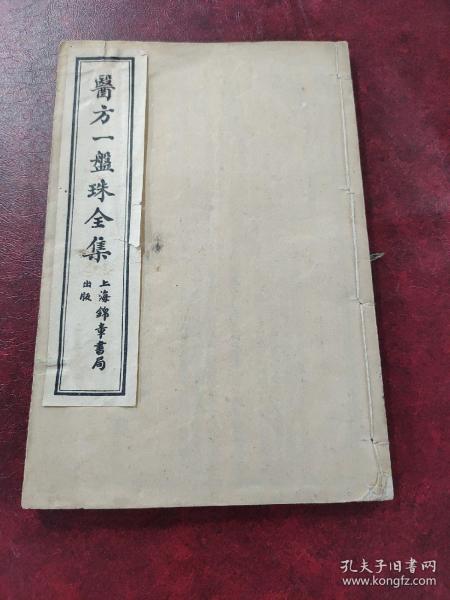 醫方一盤珠全集
上海錦章書局
出版
孔夫子旧书网
www.kongfz.com